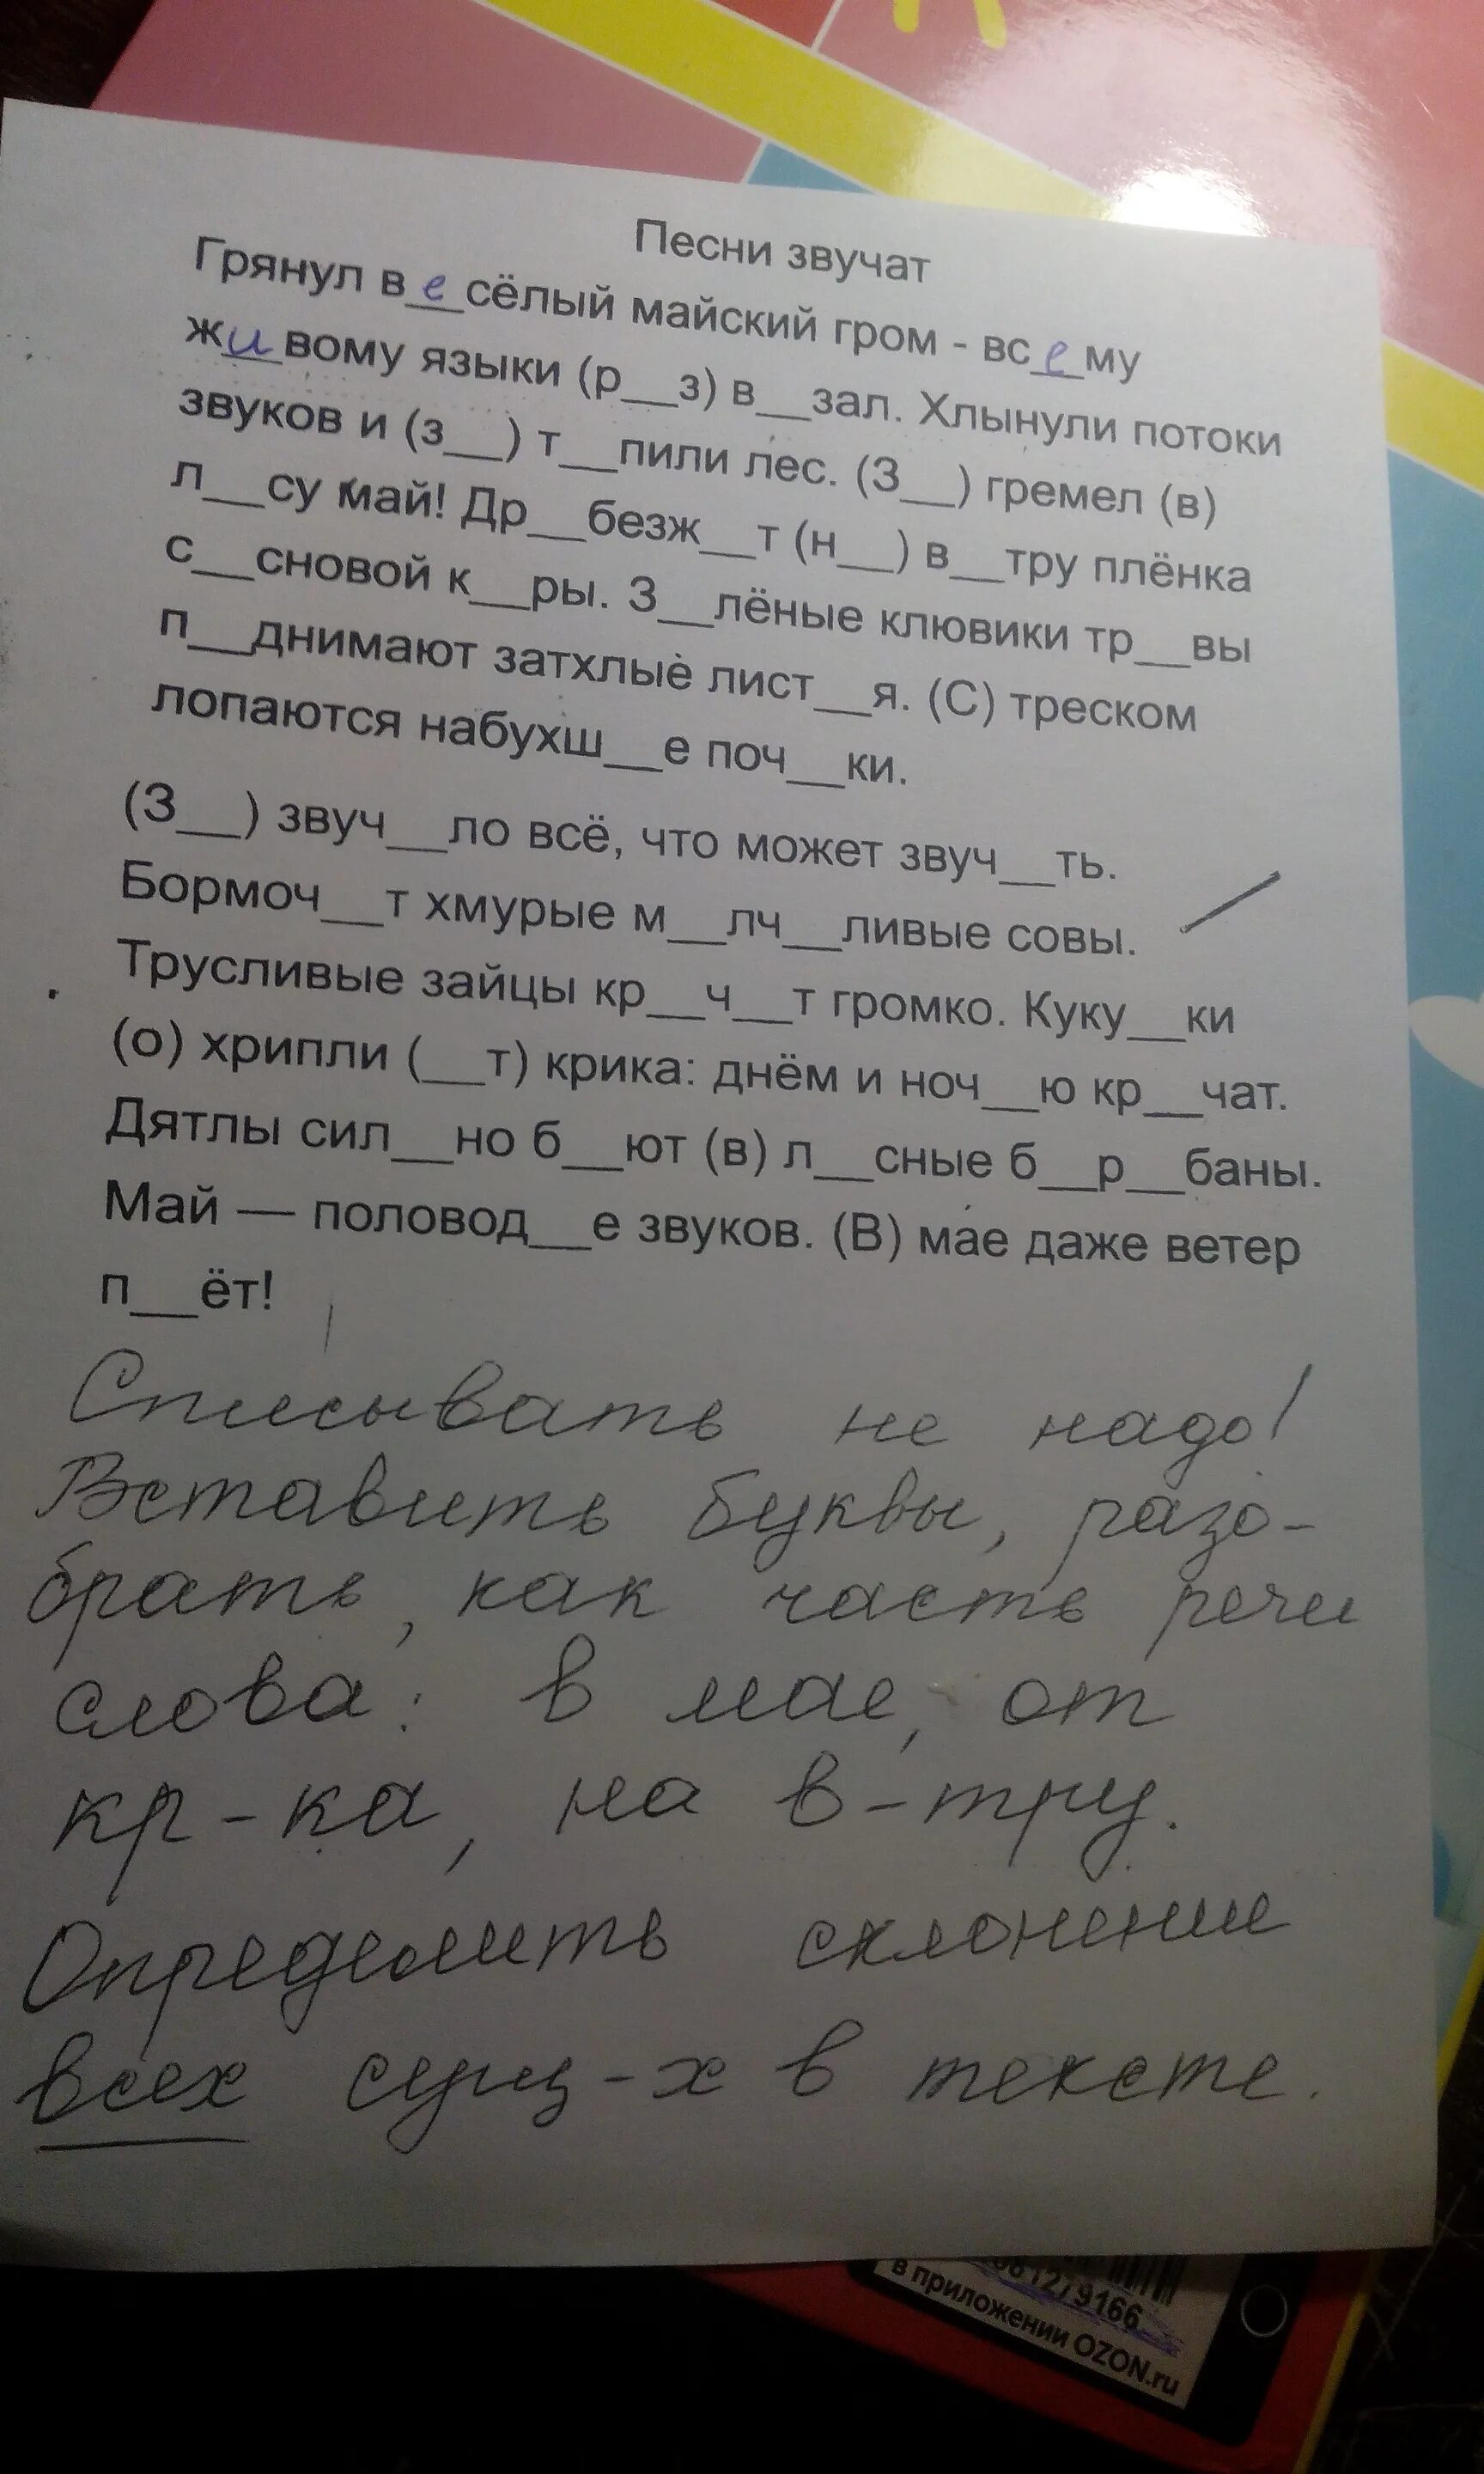 Песни звучат
Грянул в_е_сёлый майский гром - вс_е_му
ж_и_вому языки (р__з) в__зал. Хлынули потоки
звуков и (з__) т__пили лес. (З__) гремел (в)
л__су май! Др__безж__т (н__) в__тру плёнка
с__сновой к__ры. З__лёные клювики тр__вы
п__днимают затхлые лист__я. (С) треском
лопаются набухш__е поч__ки.
(З__) звуч__ло всё, что может звуч__ть.
Бормоч__т хмурые м__лч__ливые совы.
Трусливые зайцы кр__ч__т громко. Куку__ки
(о) хрипли (__т) крика: днём и ноч__ю кр__чат.
Дятлы сил__но б__ют (в) л__сные б__р__баны.
Май — половод__е звуков. (В) мае даже ветер
п__ёт!
Списывать не надо!
Вставить буквы, разо-
брать, как часть речи
слова: в мае, от
кр-ка, на в-тру.
Определить склонение
всех сущ-х в тексте.
в приложении OZON.ru